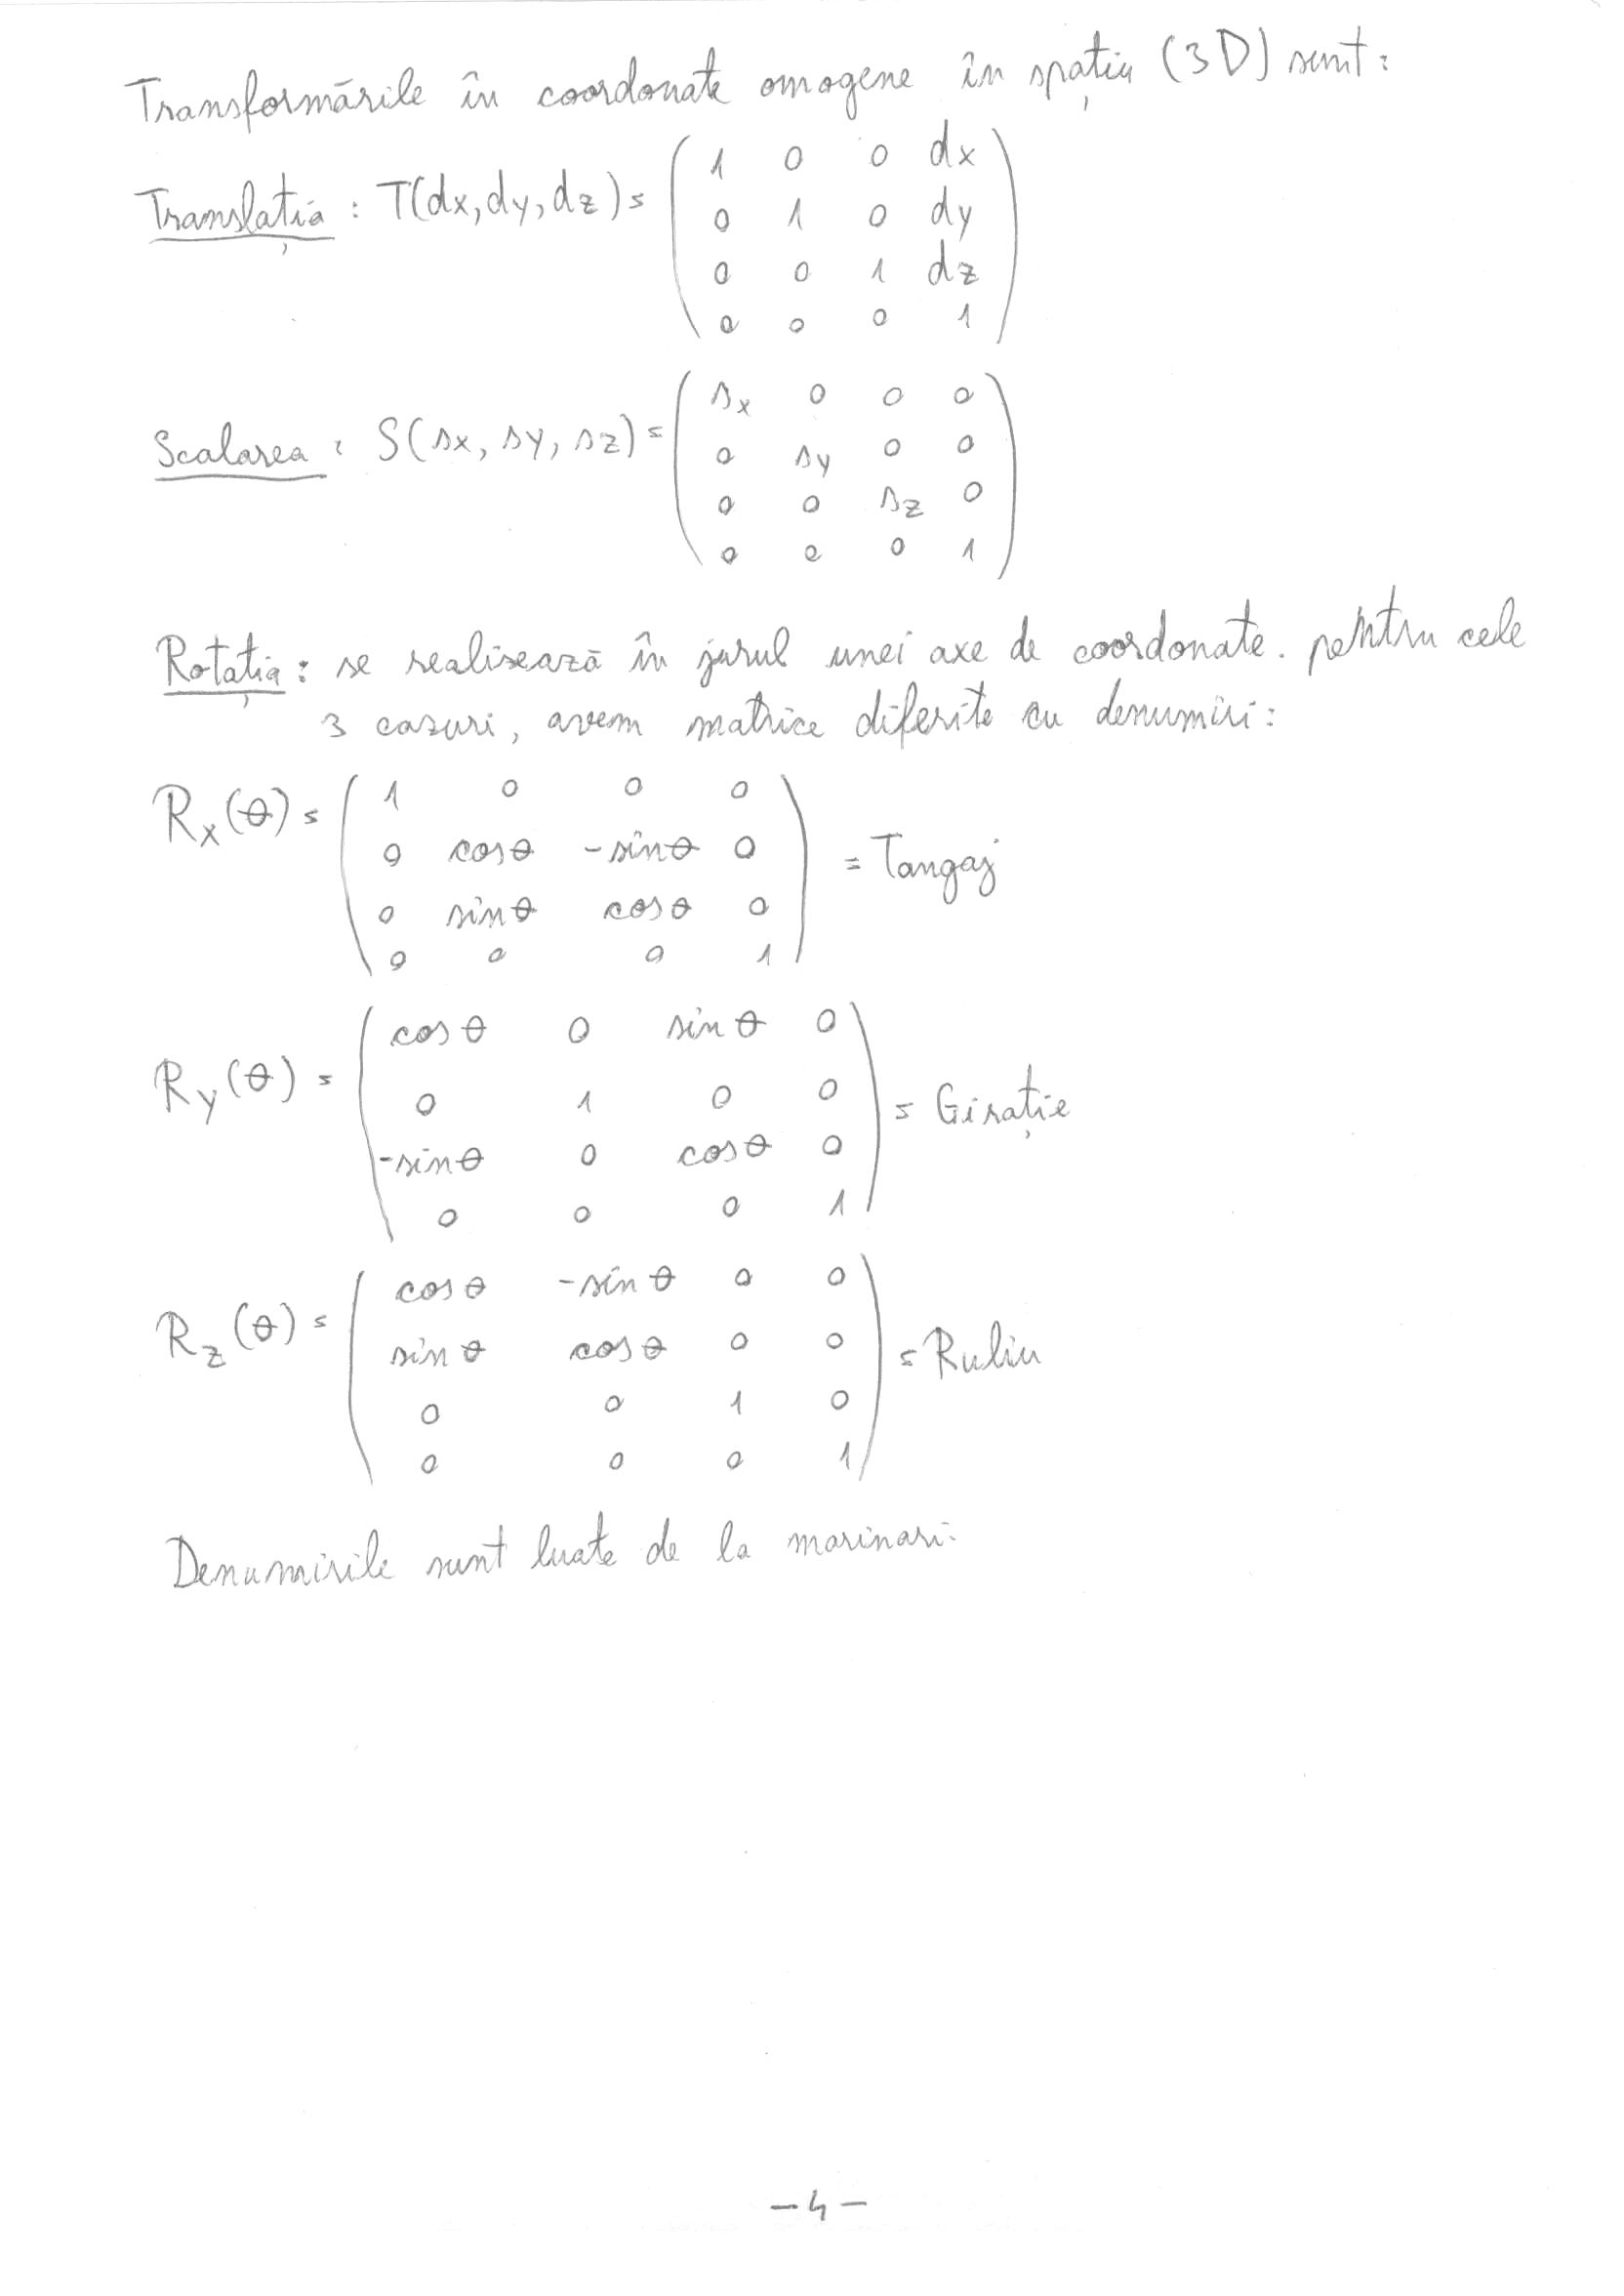 Transformările în coordonate omogene în spațiu (3D) sunt:
Translația : T(dx, dy, dz) =
1 0 0 dx
0 1 0 dy
0 0 1 dz
0 0 0 1
Scalarea : S(sx, sy, sz) =
sx 0 0 0
0 sy 0 0
0 0 sz 0
0 0 0 1
Rotația : se realisează în jurul unei axe de coordonate. pentru cele
3 cazuri, avem matrice diferite cu denumiri:
Rx(θ) =
1 0 0 0
0 cosθ -sinθ 0
0 sinθ cosθ 0
0 0 0 1
= Tangaj
Ry(θ) =
cosθ 0 sinθ 0
0 1 0 0
-sinθ 0 cosθ 0
0 0 0 1
= Girație
Rz(θ) =
cosθ -sinθ 0 0
sinθ cosθ 0 0
0 0 1 0
0 0 0 1
= Ruliu
Denumirile sunt luate de la marinari.
-4-